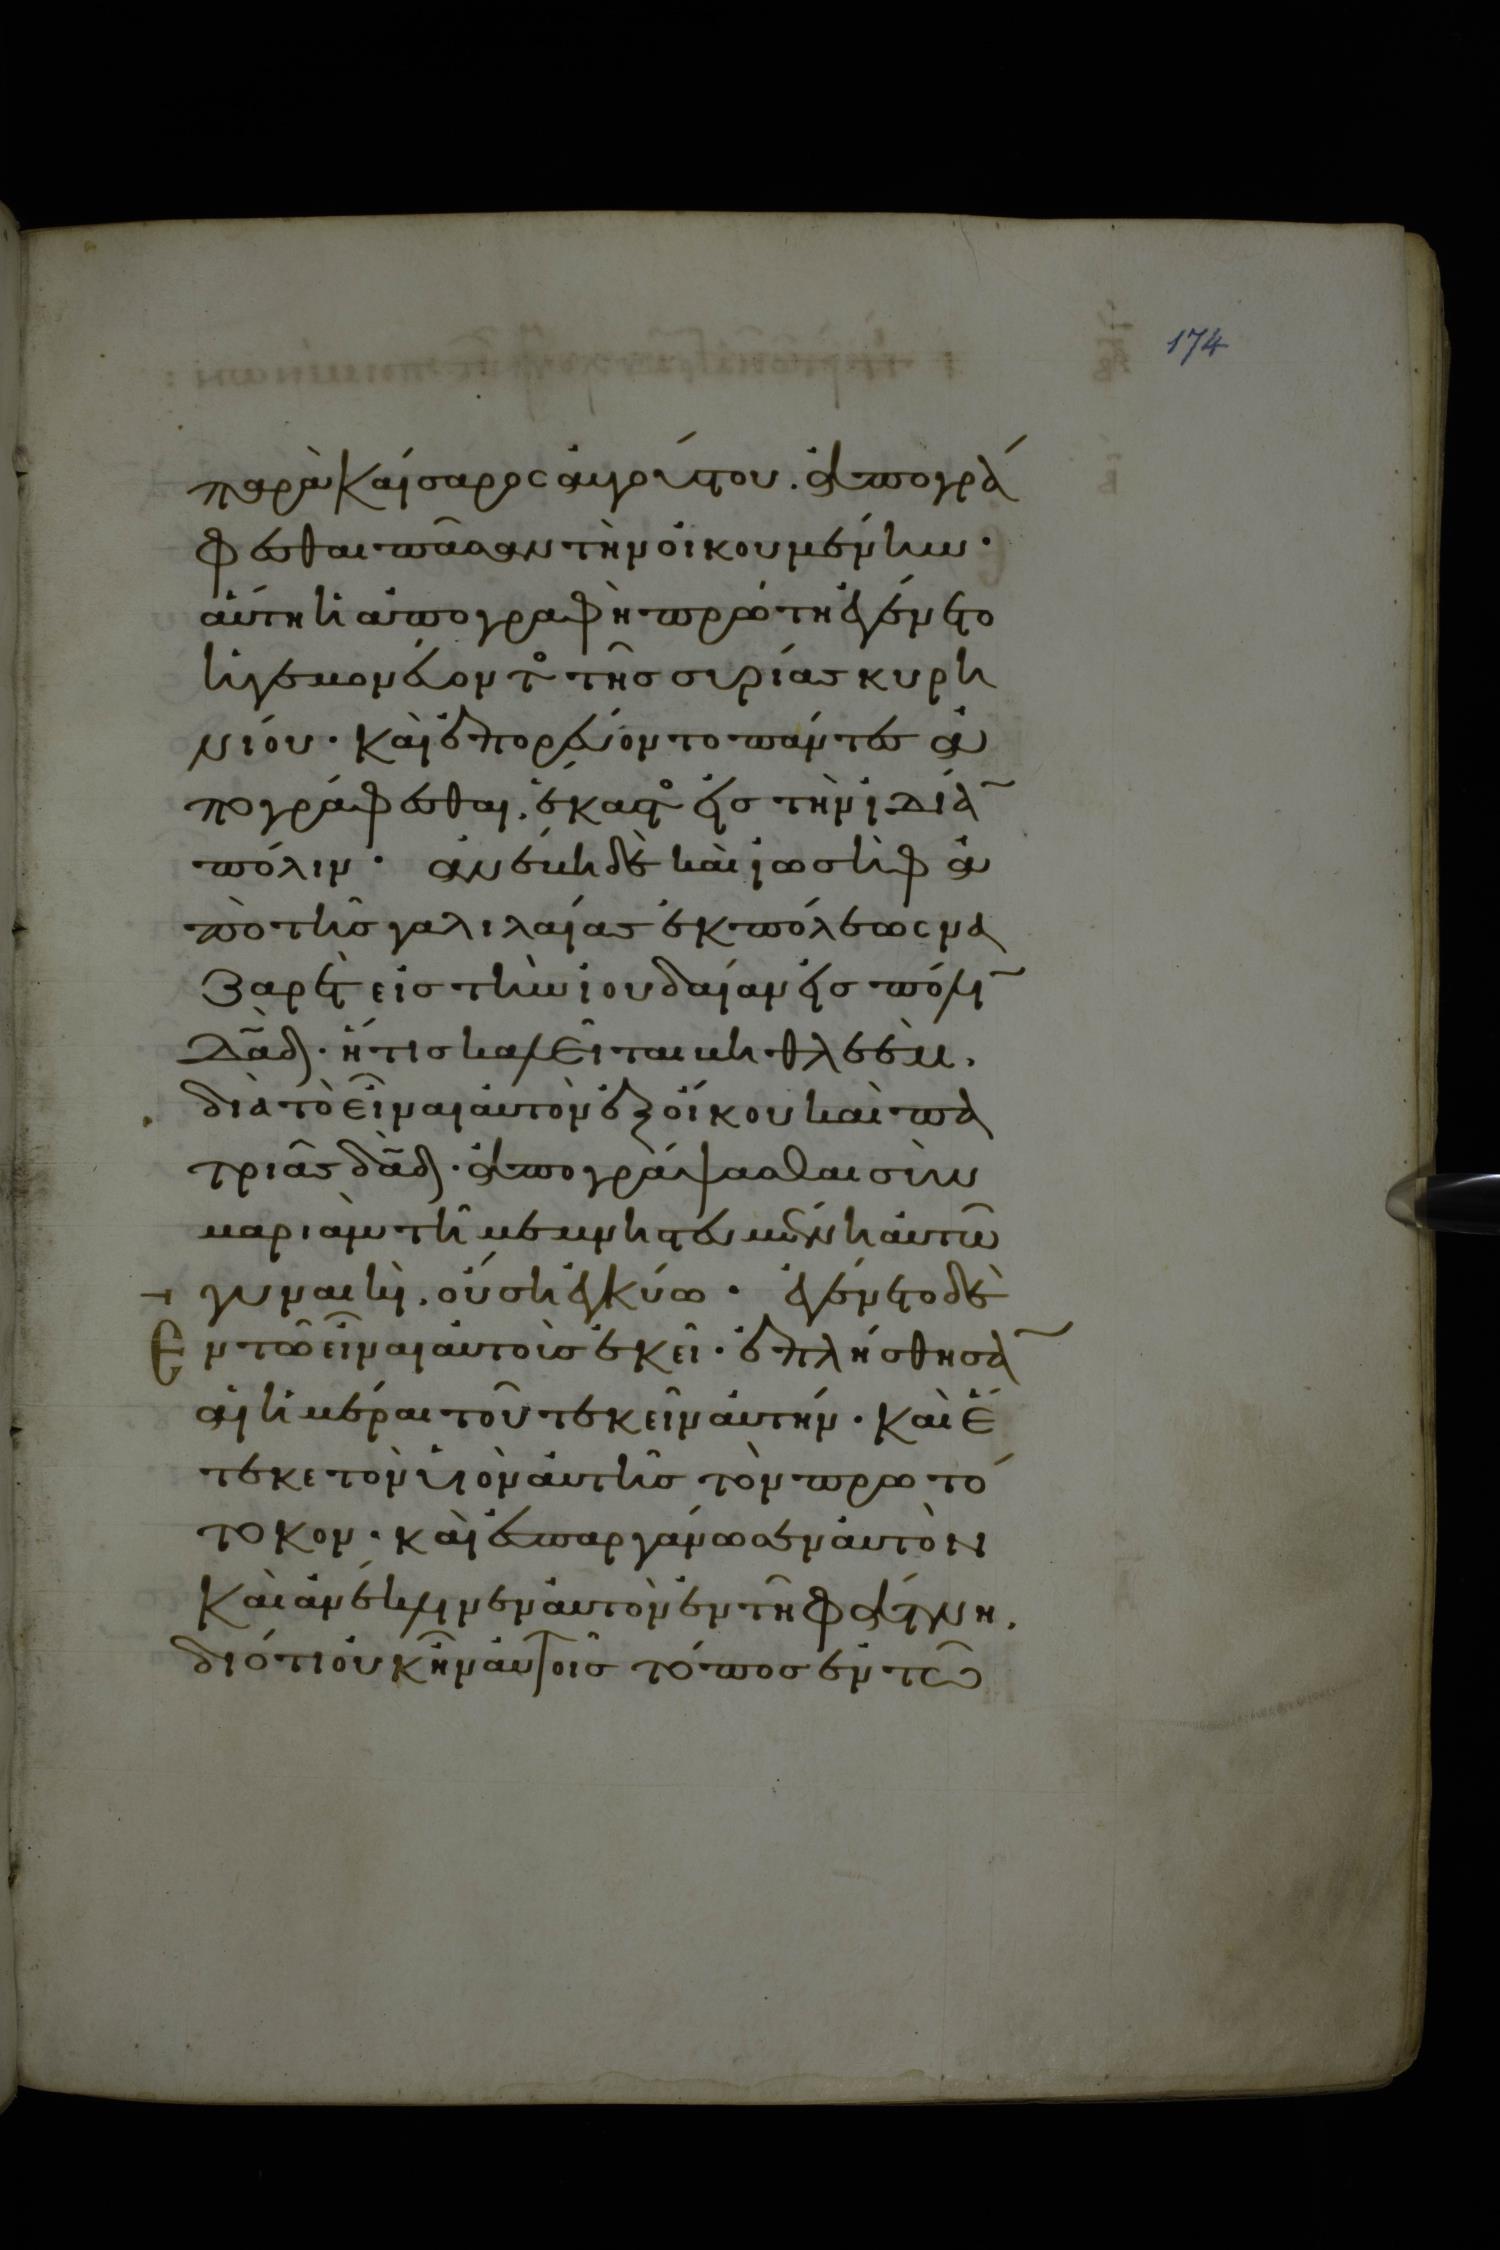 174
παρὰ Καίσαρος ἀυγούστου. ἀπογρά
φεσθαι πᾶσαν τὴν ὀικουμένην·
ἀύτη ἡ ἀπογραφὴ πρώτη ἐγένετο
ἡγεμονέυοντ̊ τῆς συρίας κυρη
νίου· καὶ ἐπορέυοντο πάντες ἀ
πογράφεσθαι. ἕκαστ̊ ἐις τὴν ἰδία̃
πόλιν· ἀνέβη δὲ καὶ ἰωσὴφ ἀ
πὸ τῆς γαλιλαίας ἐκ πόλεως να
ζαρὲτ εἰς τὴν ἰουδαίαν ἐις πόλι̃
δα̃δ· ἥτις καλεῖται βηθλεὲμ.
διὰ τὸ εἶναι ἀυτὸν ἐξ ὄικου καὶ πα
τριᾶς δα̃δ· ἀπογράψασθαι σὺν
μαριὰμ τῆ μεμνηστευμένη ἀυτῶ
γυναικὶ. ὄυση ἐγκύω· ἐγένετο δὲ
Εν τῶ εἶναι ἀυτοὺς ἐκεῖ· ἐπλήσθησα̃
ἁι ἡμέραι τοῦ τεκεῖν ἀυτήν· καὶ ἔ
τεκε τὸν υἱὸν ἀυτῆς τὸν πρωτό
τοκον· καὶ ἐσπαργάνωσεν ἀυτὸν
καὶ ἀνέκλινεν ἀυτὸν ἐν τῆ φάτνη.
διότι ὀυκ ἦν ἀυτοῖς τόπος ἐν τῶ